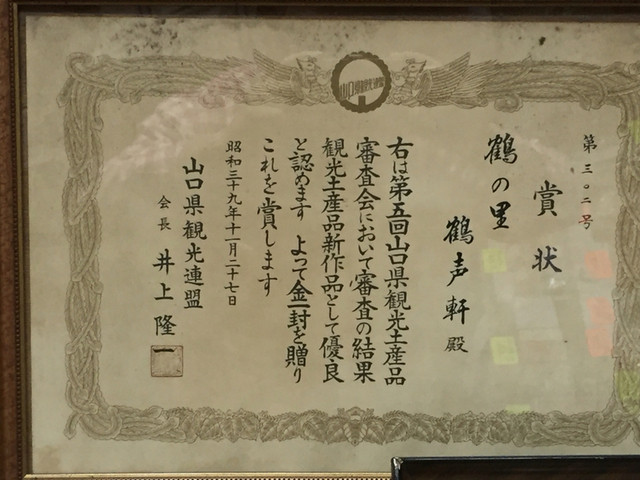 第三〇二号
賞状
鶴の里
鶴声軒殿
右は第五回山口県観光土産品
審査会において審査の結果
観光土産品新作品として優良
と認めます よって金一封を贈り
これを賞します
昭和三十九年十一月二十七日
山口県観光連盟
会長 井上隆一